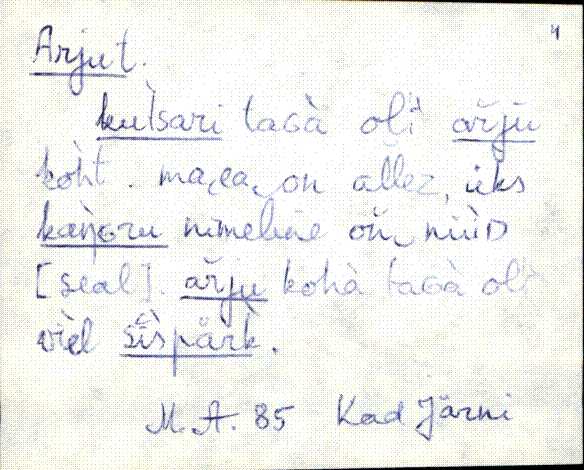 4
Arjut.
kut̀sari taGà oĺi aŕju
kòht. maja on allez, üks
kaǹGru nimeline oñ nüüD
[seal]. aŕju kohà taGà oli
vièl šīšpàrk.
M.A. 85 Kad Järni